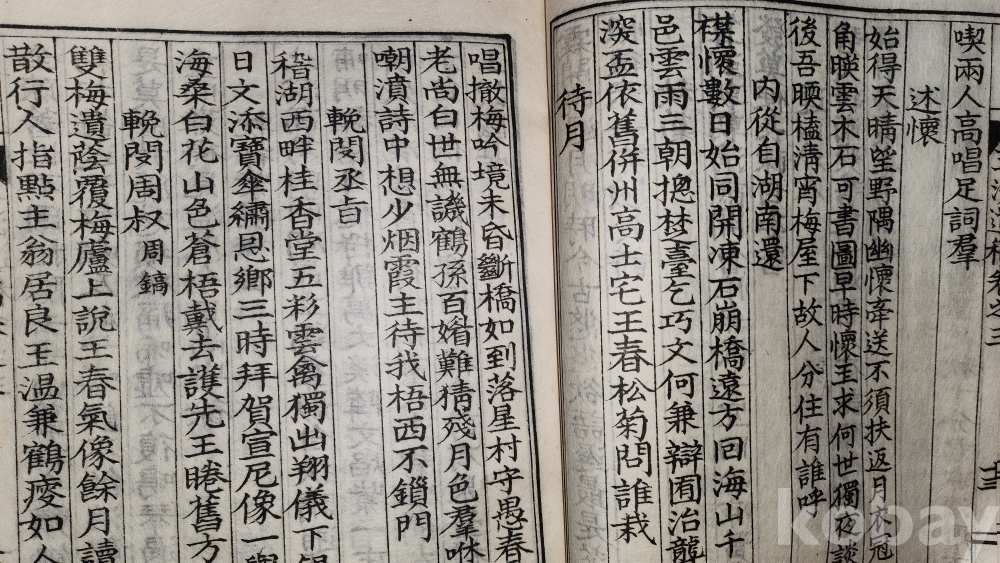 喫兩人高唱足詞羣
述懷
始得天晴望野隅幽懷牽送不須扶返月木冠
角暎雲木石可書圖早時懷王求何世獨夜談
後吾暎榼淸宵梅屋下故人分住有誰呼
內從自湖南還
襟懷數日始同開凍石崩橋遠方回海山千
邑雲雨三朝摠梦臺乞巧文何兼辯囿治聾
深盃依舊倂州高士宅王春松菊問誰栽
待月
唱撤梅吟境未昏斷橋如到落星村守愚春
老尙白世無譏鶴孫百媠難精殘月色羣咻
嘲濆詩中想少烟霞主待我梧西不鎖門
輓閔丞旨
稽湖西畔桂香堂五彩雲禽獨出翔儀下
日文添寶傘繡恩鄉三時拜賀宣尼像一
海桑白花山色蒼梧戴去護先王睠舊方
輓閔周叔 周鎬
雙梅遺蔭覆梅廬上說王春氣像餘月讀
散行人指點主翁居良王溫兼鶴瘦如人
卷之三
kobay